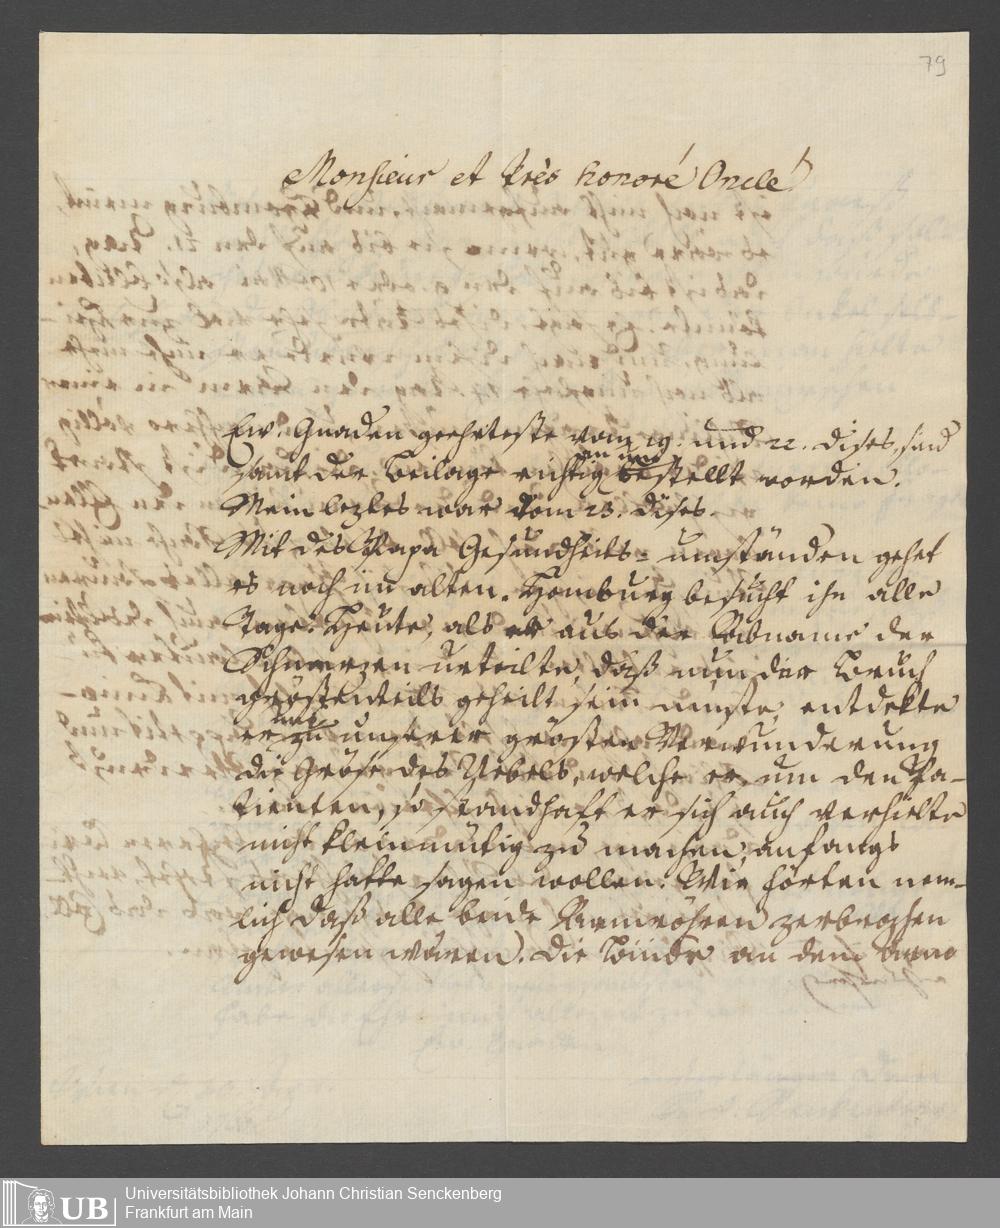 79
Monsieur et très honoré Oncle!
Ew. Gnaden geehrteste vom 19. und 22. dises, sind
samt der Beilage richtig an mich bestellt worden.
Mein leztes war vom 23. dises.
Mit des Papa Gesundheits-umständen gehet
es noch im alten. Homburg besucht ihn alle
Tage. Heute, als er aus der Abname der
Schmerzen urteilte, daß nun der Bruch
gröstenteils geheilt sein müste, entdekte
er uns zu unserer grösten Verwunderung
die Gröse des Uebels, welche er, um den Pa-
tienten, so standhaft er sich auch verhielte
nicht kleinmütig zu machen, anfangs
nicht hatte sagen wollen. Wir hörten nem-
lich daß alle beide Armröhren zerbrochen
gewesen wären. Die Binde an dem Arme
UB
Universitätsbibliothek Johann Christian Senckenberg
Frankfurt am Main